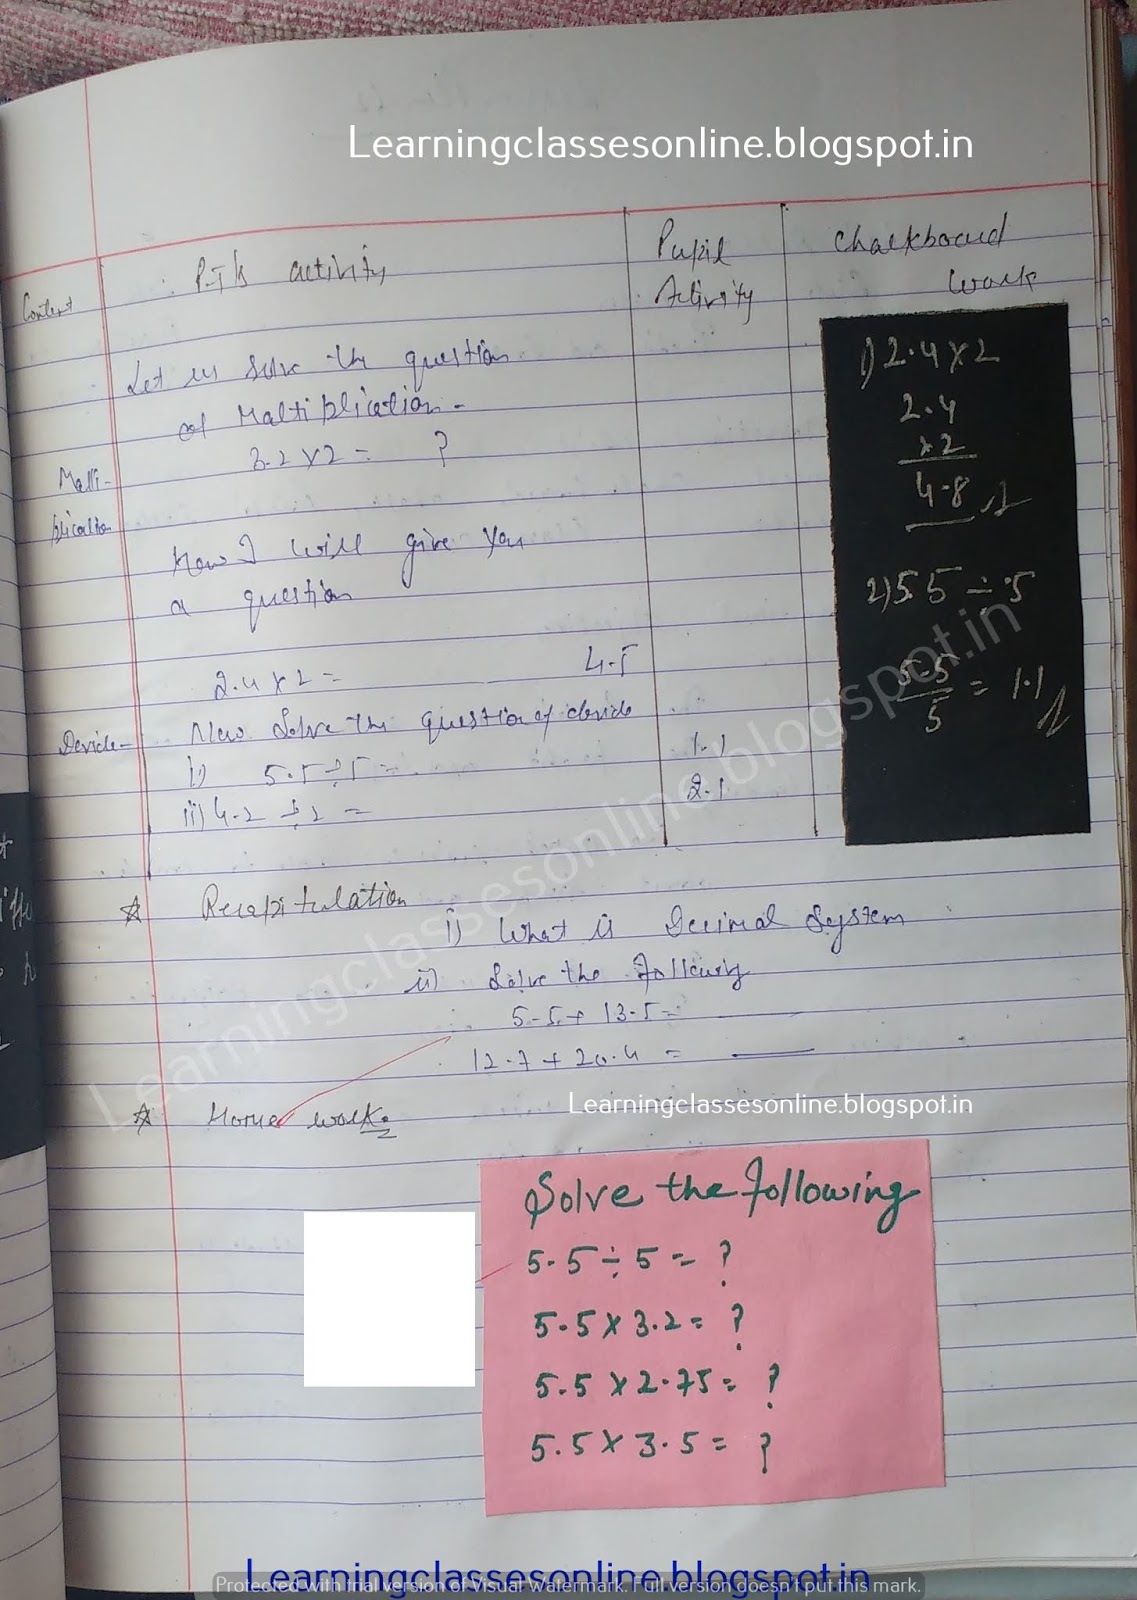 Learningclassesonline.blogspot.in
Content
P-T's activity
Pupil
Activity
Chalkboard
work
Let us solve the question
of Multiplication-
3.2 × 2 = ?
Multi-
plication
Now I will give you
a question
2.4 × 2 =
4.5
Devide-
Now Solve the question of devide
i) 5.5 ÷ 5 =
1.1
ii) 4.2 ÷ 2 =
2.1
1) 2.4 × 2
2.4
× 2
4.8
2) 5.5 ÷ 5
5.5
5
= 1.1
☆ Recapitulation
i) What is Decimal System
ii) Solve the following
5.5 + 13.5 =
12.7 + 20.4 =
☆ Home work:
Learningclassesonline.blogspot.in
Solve the following
5.5 ÷ 5 = ?
5.5 × 3.2 = ?
5.5 × 2.75 = ?
5.5 × 3.5 = ?
Learningclassesonline.blogspot.in
Learningclassesonline.blogspot.in
Protected with trial version of Visual Watermark. Full version doesn't put this mark.